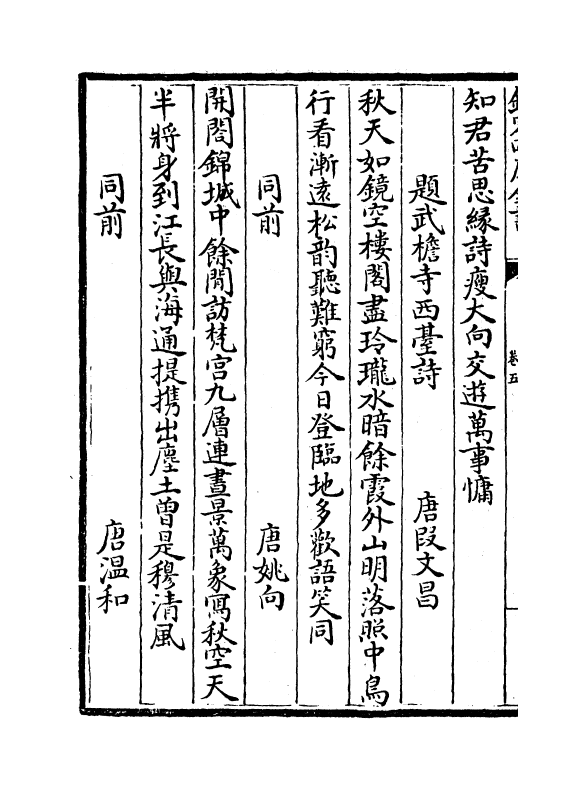 卷五
知君苦思緣詩瘦大向交遊萬事慵
題武檐寺西臺詩　唐段文昌
秋天如鏡空樓閣盡玲瓏水暗餘霞外山明落照中鳥
行看漸遠松韵聽難窮今日登臨地多歡語笑同
同前　唐姚向
開閣錦城中餘閒訪梵宫九層連晝景萬象寫秋空天
半將身到江長與海通提携出塵土曽是穆清風
同前　唐温和